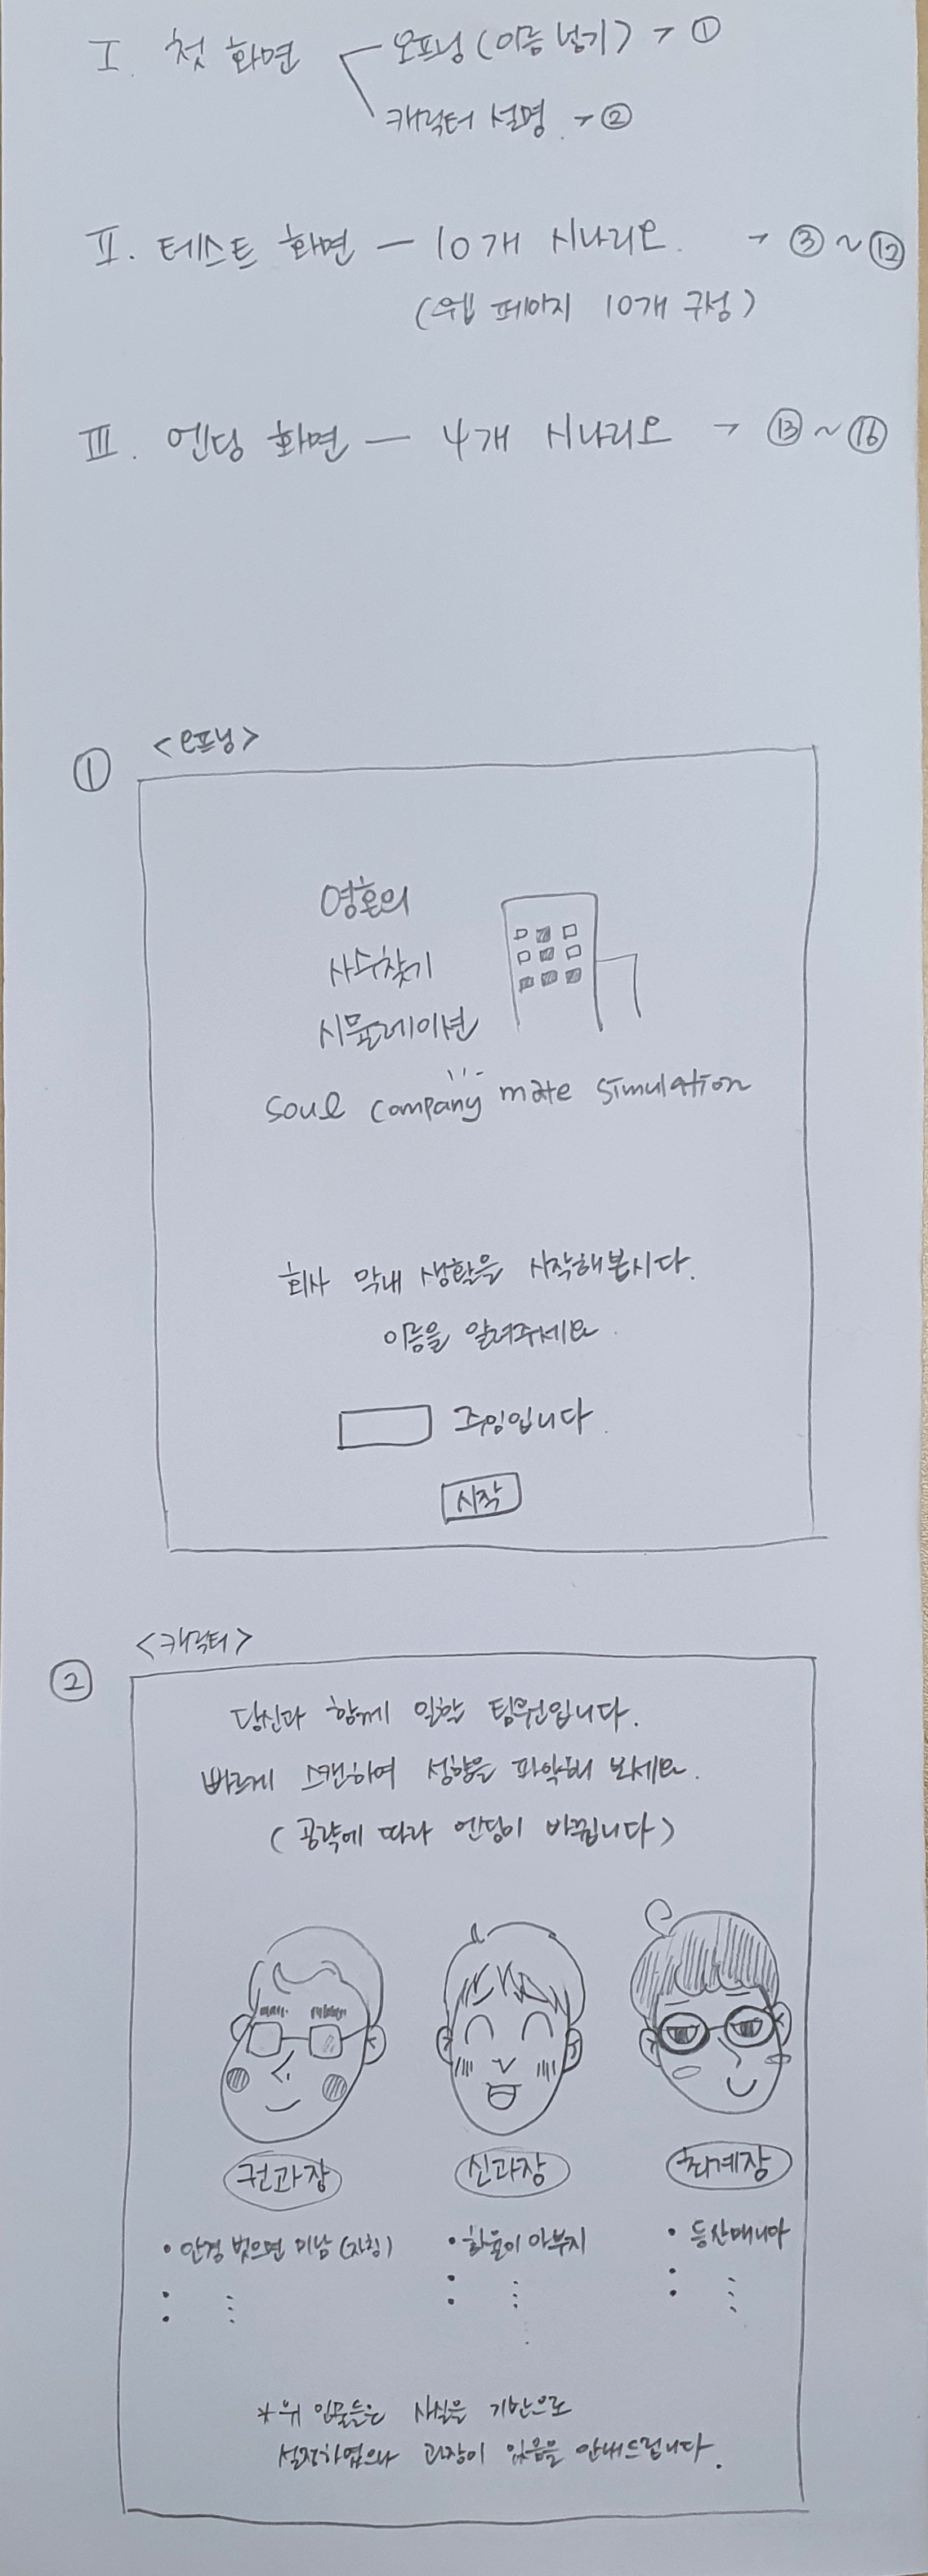 I. 첫 화면
오프닝 (이름 넣기) → ①
캐릭터 설명. → ②
II. 테스트 화면 — 10개 시나리오. → ③ ~ ⑫
(웹 페이지 10개 구성)
III. 엔딩 화면 — 4개 시나리오 → ⑬ ~ ⑯
① <오프닝>
영혼의
사수찾기
시뮬레이션
soul company mate simulation
회사 막내 생활을 시작해봅시다.
이름을 알려주세요.
주임입니다.
시작
② <캐릭터>
당신과 함께 일할 팀원입니다.
빠르게 스캔하여 성향을 파악해 보세요.
(공략에 따라 엔딩이 바뀝니다)
권과장 신과장 최계장
• 안경 벗으면 미남 (자칭) • 하율이 아부지 • 등산매니아
* 위 인물들은 사실을 기반으로
설정하였으나 과장이 있음을 안내드립니다.